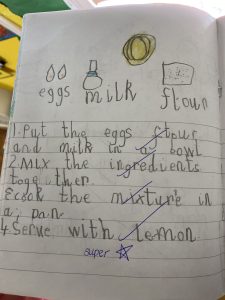 eggs milk flour
1. Put the eggs flour
and milk in a bowl
2 Mix the ingredients
toge ther.
3 cook the mixture in
a pan
4 Serve with lemon
super